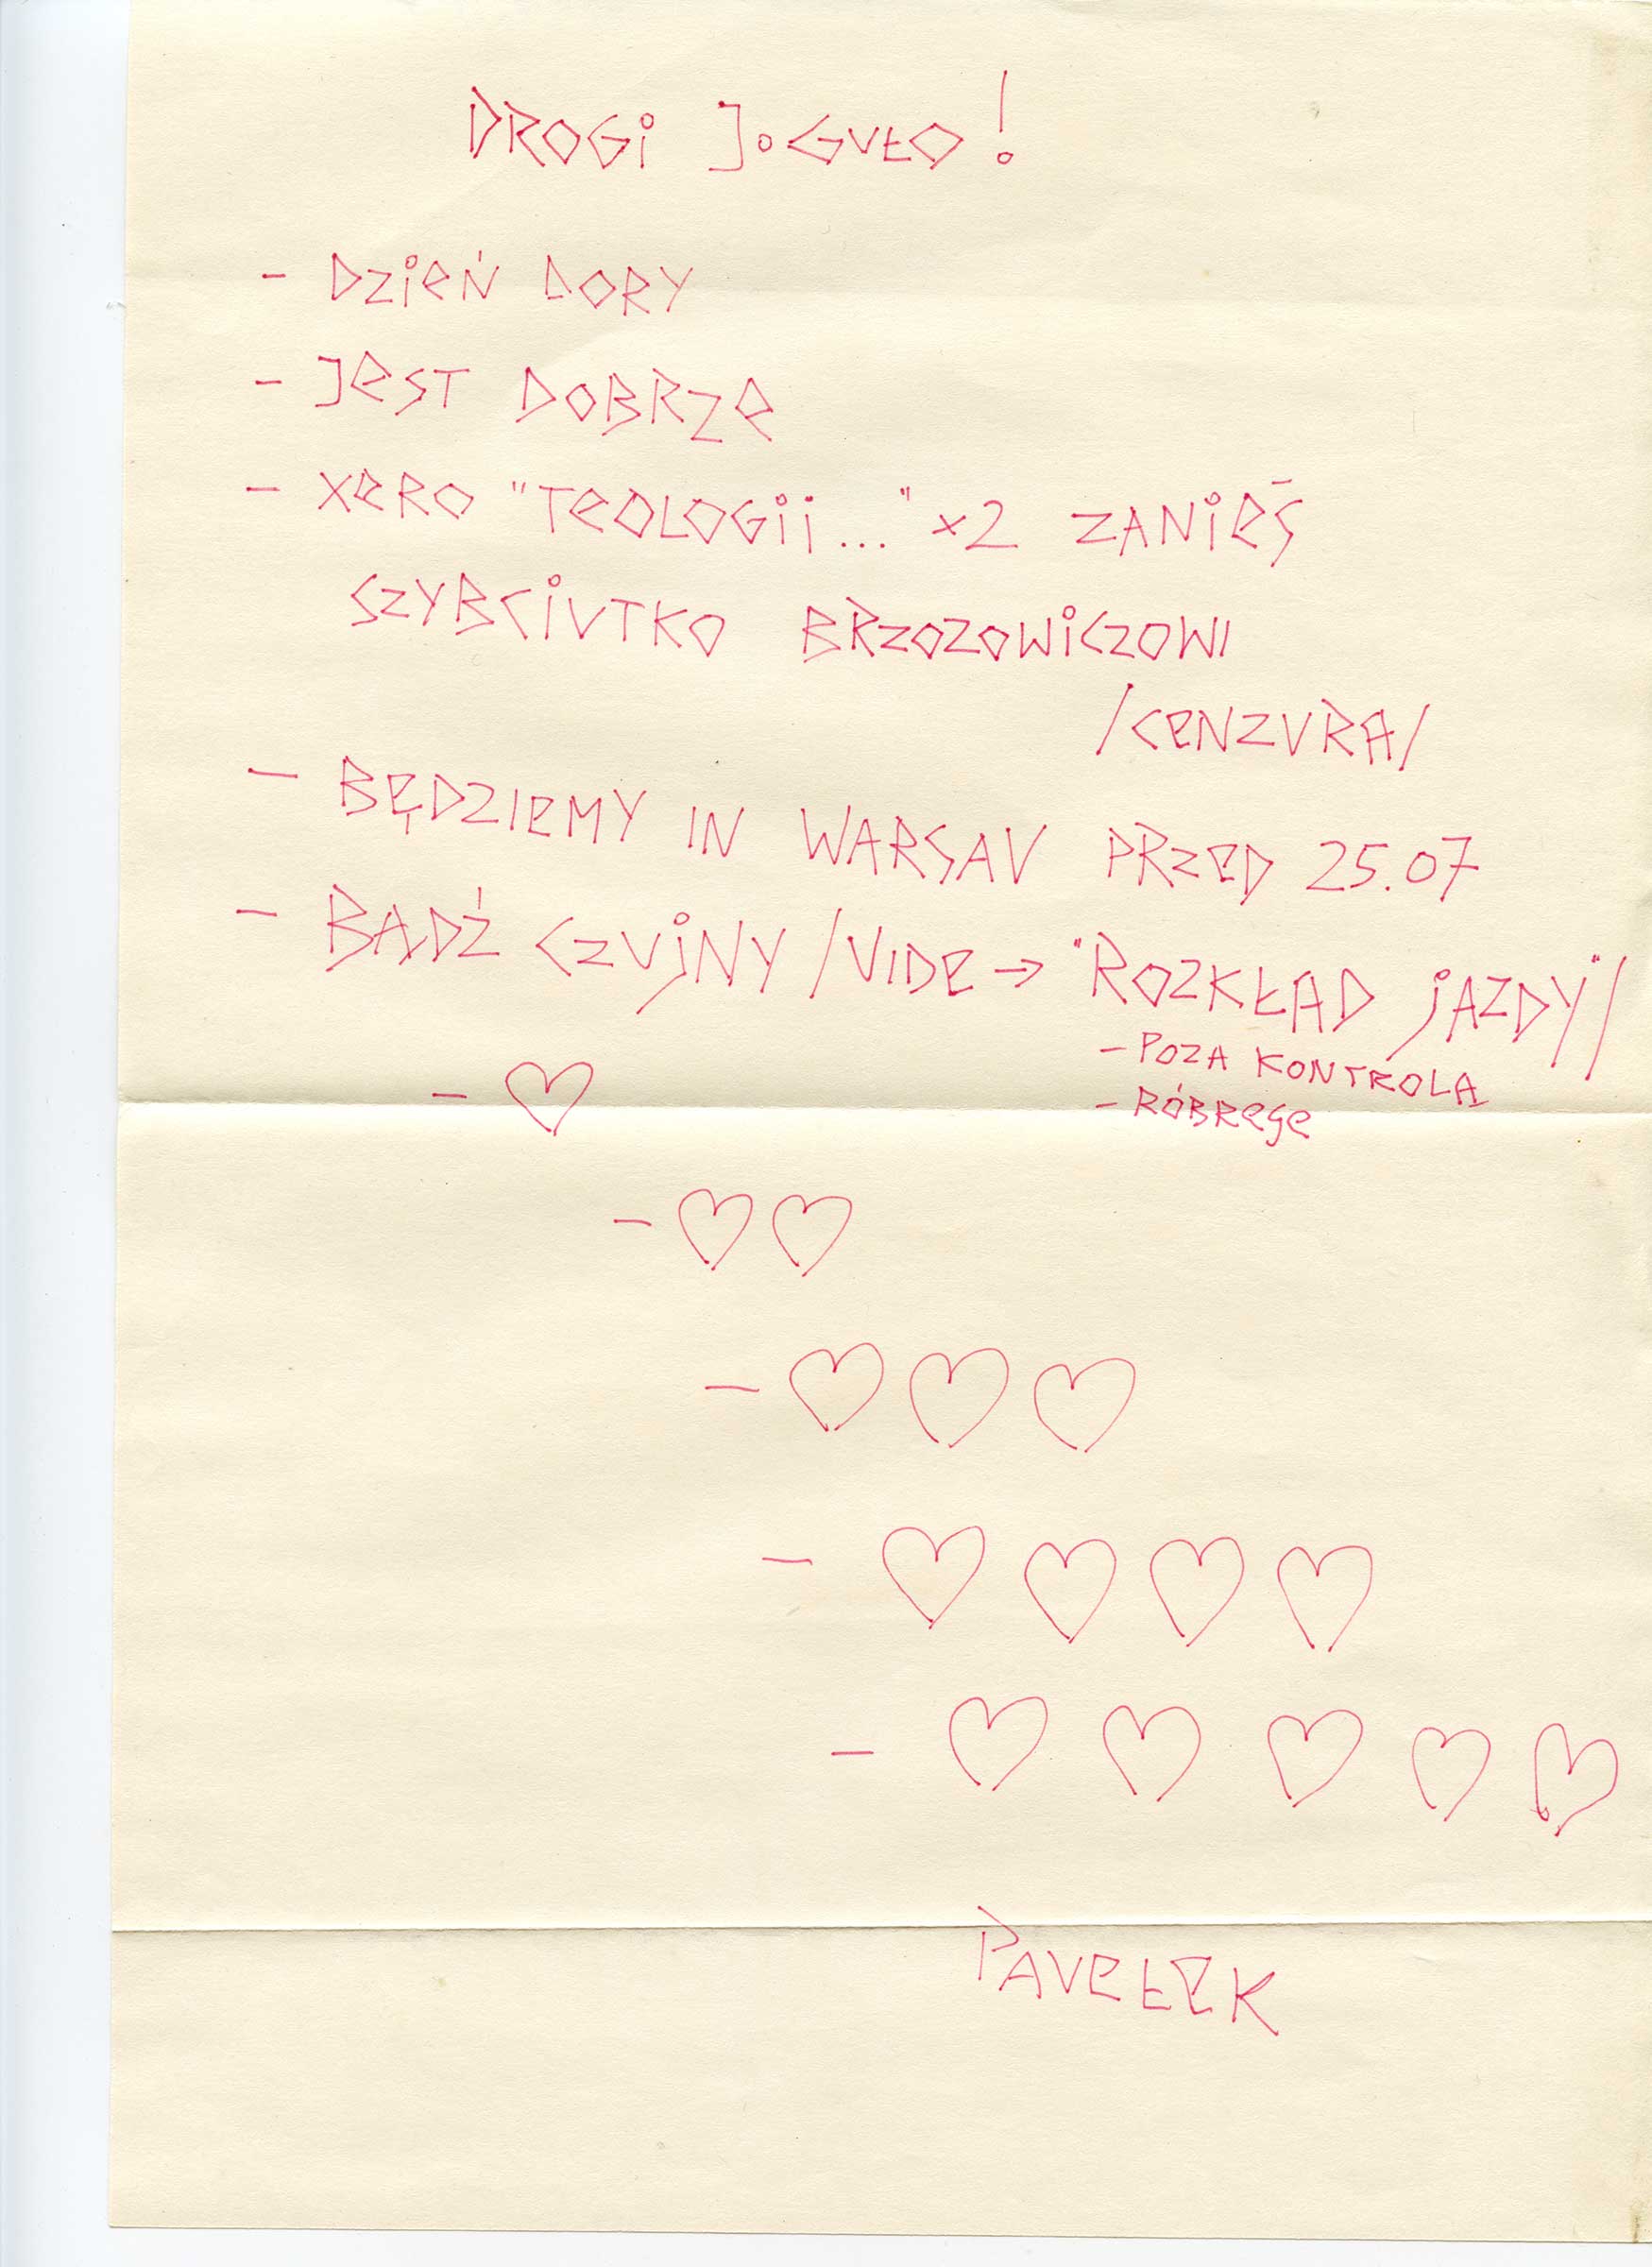 DROGi JoGVŁO!
- DZieŃ DORY
- JeST DOBRZe
- XeRO "TeOLOGii..." x2 ZANieŚ
SZYBCiVTKO BRZOZOWiCZOWI
/CeNZVRA/
- BĘDZIeMY IN WARSAV PRZeD 25.07
- BĄDŹ CZVjNY /VIDe → "ROZKŁAD jAZDY"/
- POZA KONTROLĄ
- RÓBReGe
- ♡
- ♡♡
- ♡♡♡
- ♡♡♡♡
- ♡♡♡♡♡
PAVeŁeK